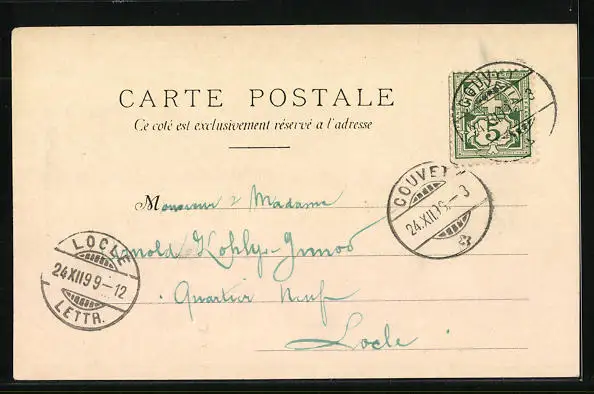 CARTE POSTALE
Ce coté est exclusivement réservé a l'adresse
COUV
5
COUVET
24.XII.99-3
Monsieur & Madame
LOCLE
24.XII.99-12
LETTR.
Arnold Kohly-
Quartier Neuf
Locle